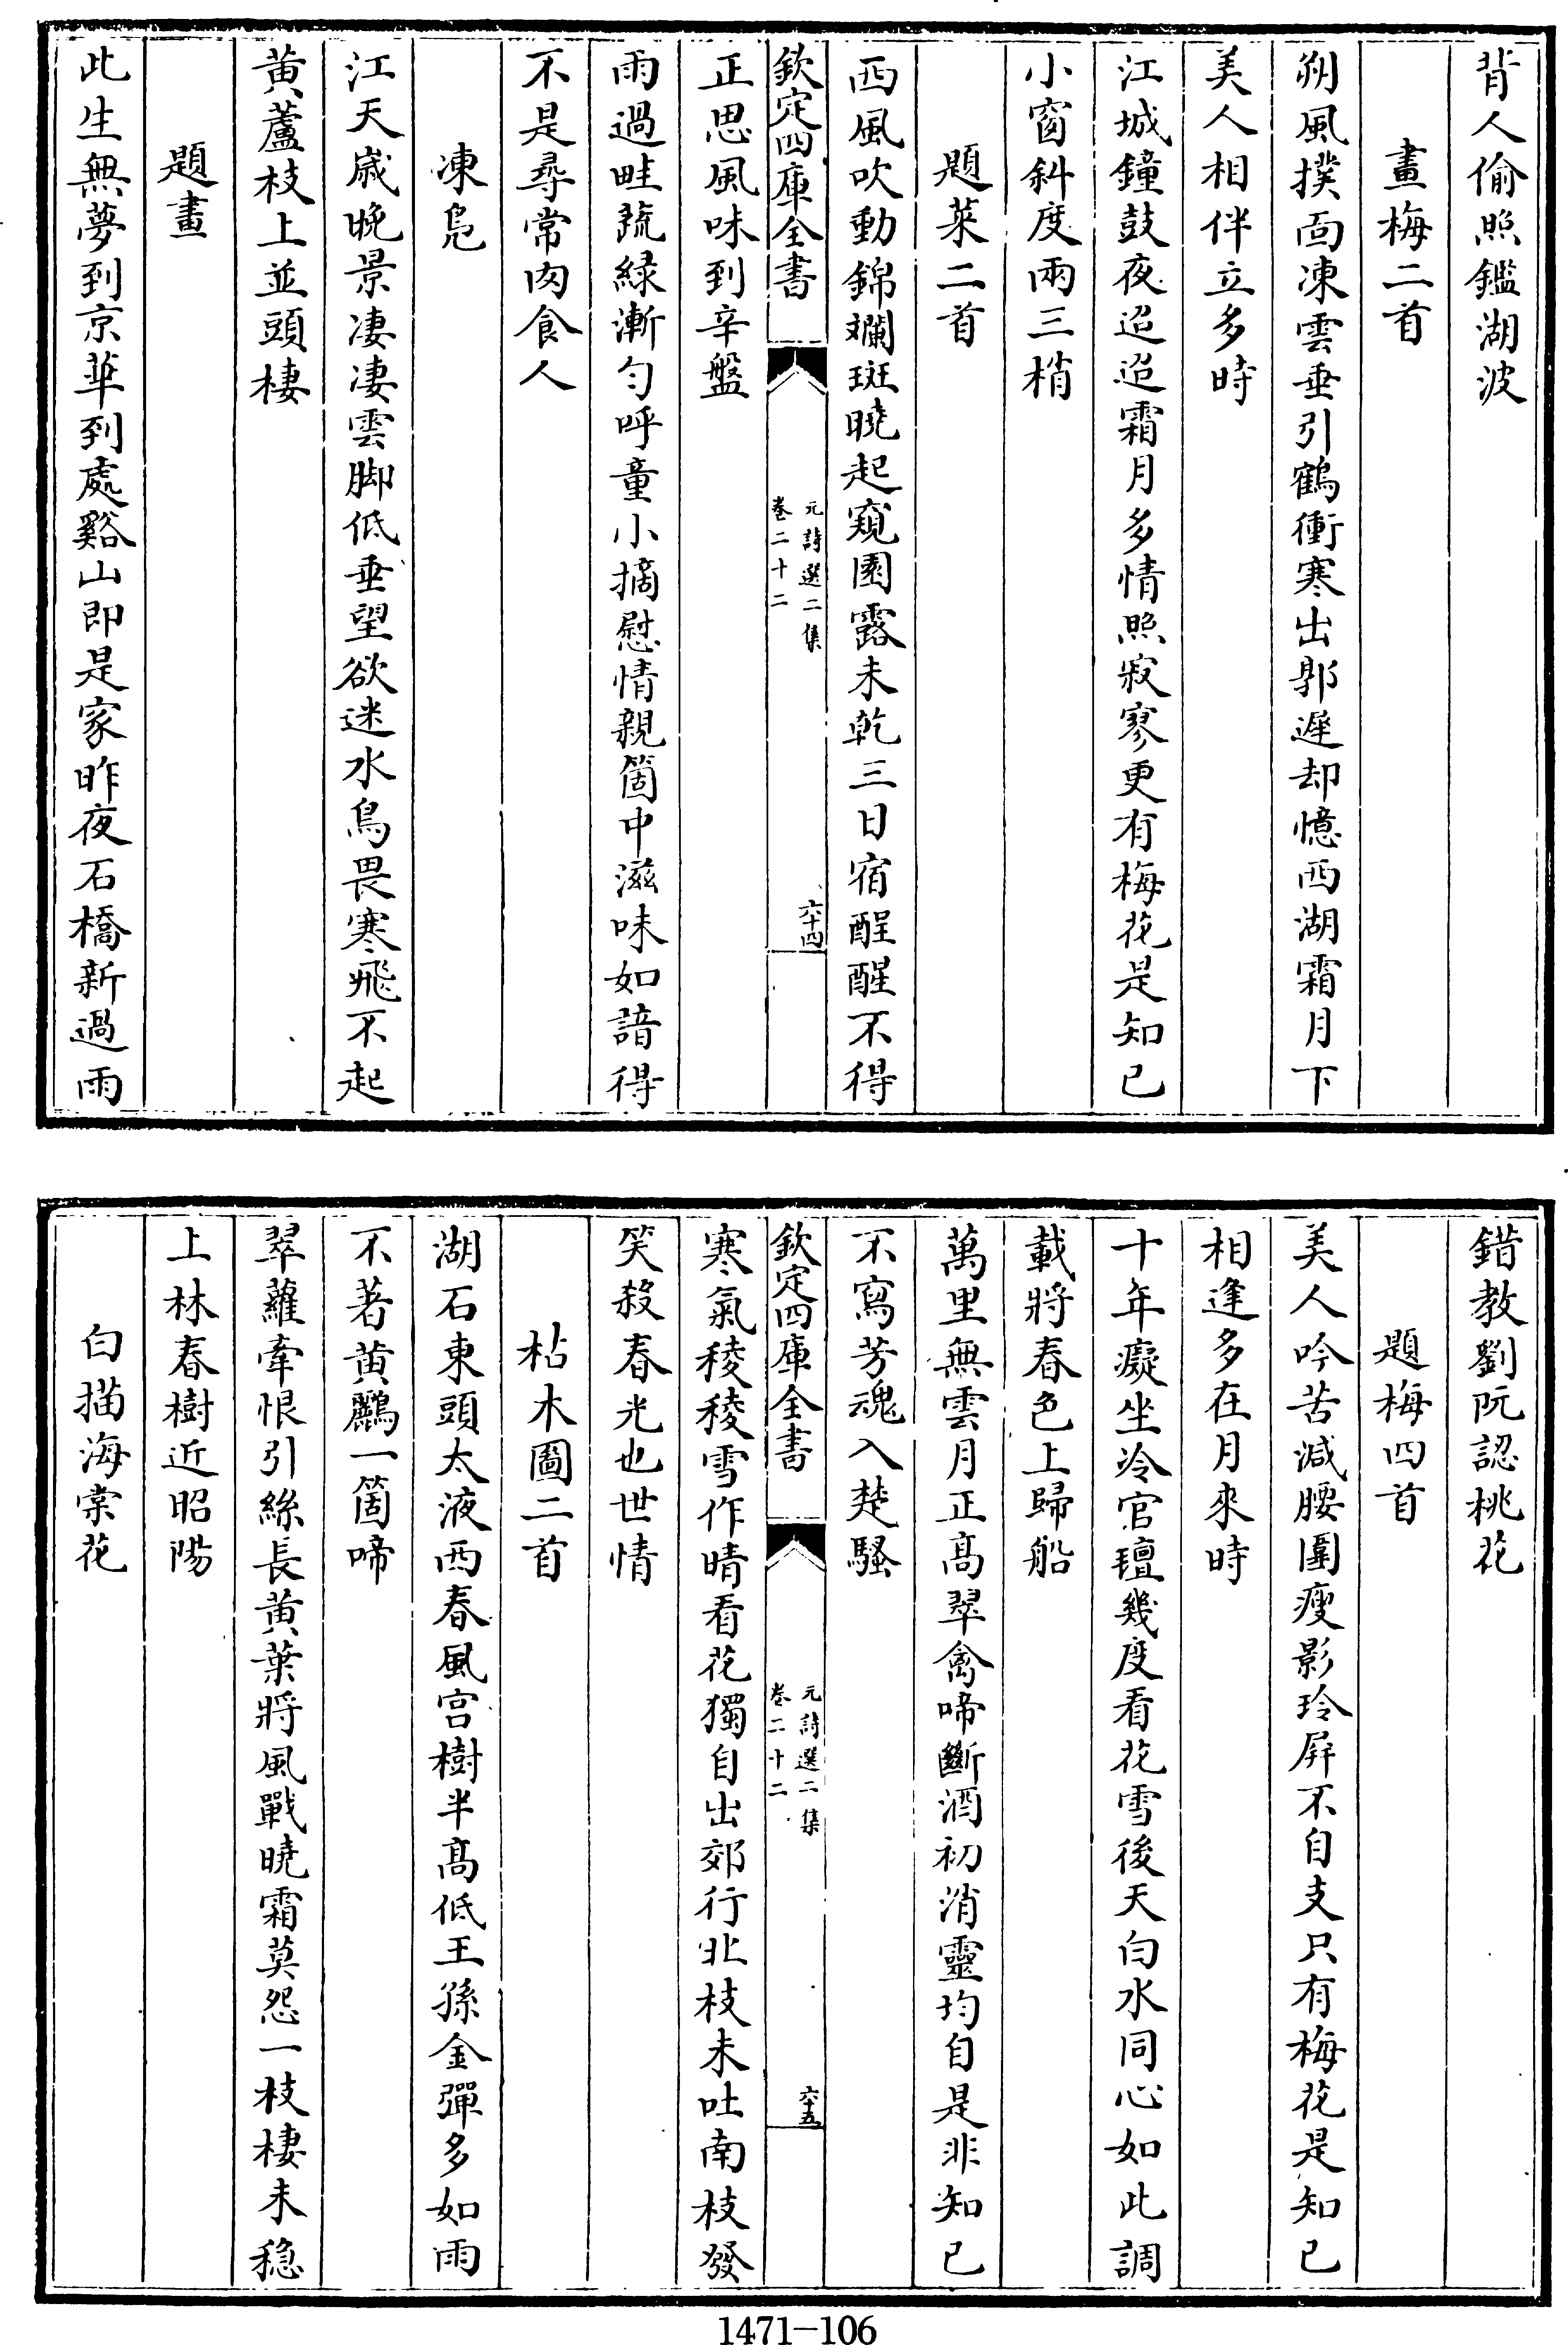 背人偷照鑑湖波
畫梅二首
朔風撲面凍雲垂引鶴衝寒出郭遲却憶西湖霜月下
美人相伴立多時
江城鐘鼓夜迢迢霜月多情照寂寥更有梅花是知己
小窗斜度兩三梢
題菜二首
西風吹動錦斕斑曉起窺園露未乾三日宿酲醒不得
欽定四庫全書
元詩選二集
卷二十二
六十四
正思風味到辛盤
雨過畦蔬緑漸勻呼童小摘慰情親箇中滋味如諳得
不是尋常肉食人
凍凫
江天歲晚景凄凄雲脚低垂望欲迷水鳥畏寒飛不起
黄蘆枝上並頭棲
題畫
此生無夢到京華到處谿山即是家昨夜石橋新過雨
錯教劉阮認桃花
題梅四首
美人吟苦減腰圍瘦影玲屏不自支只有梅花是知己
相逢多在月來時
十年癡坐冷官壇幾度看花雪後天白水同心如此調
載將春色上歸船
萬里無雲月正高翠禽啼斷酒初消靈均自是非知己
不寫芳魂入楚騷
欽定四庫全書
元詩選二集
卷二十二
六十五
寒氣稜稜雪作晴看花獨自出郊行北枝未吐南枝發
笑殺春光也世情
枯木圖二首
湖石東頭太液西春風宫樹半高低王孫金彈多如雨
不著黄鸝一箇啼
翠蘿牽恨引絲長黄葉將風戰曉霜莫怨一枝棲未穏
上林春樹近昭陽
白描海棠花
1471-106